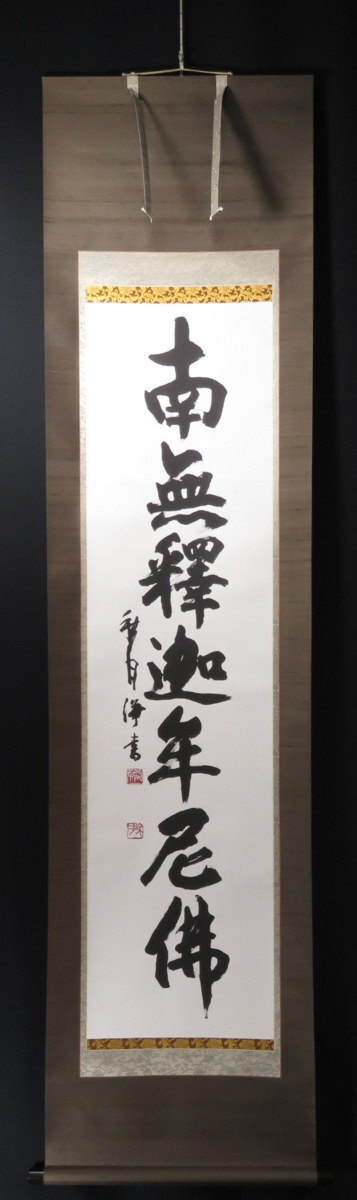 南無釋迦牟尼佛
月 書